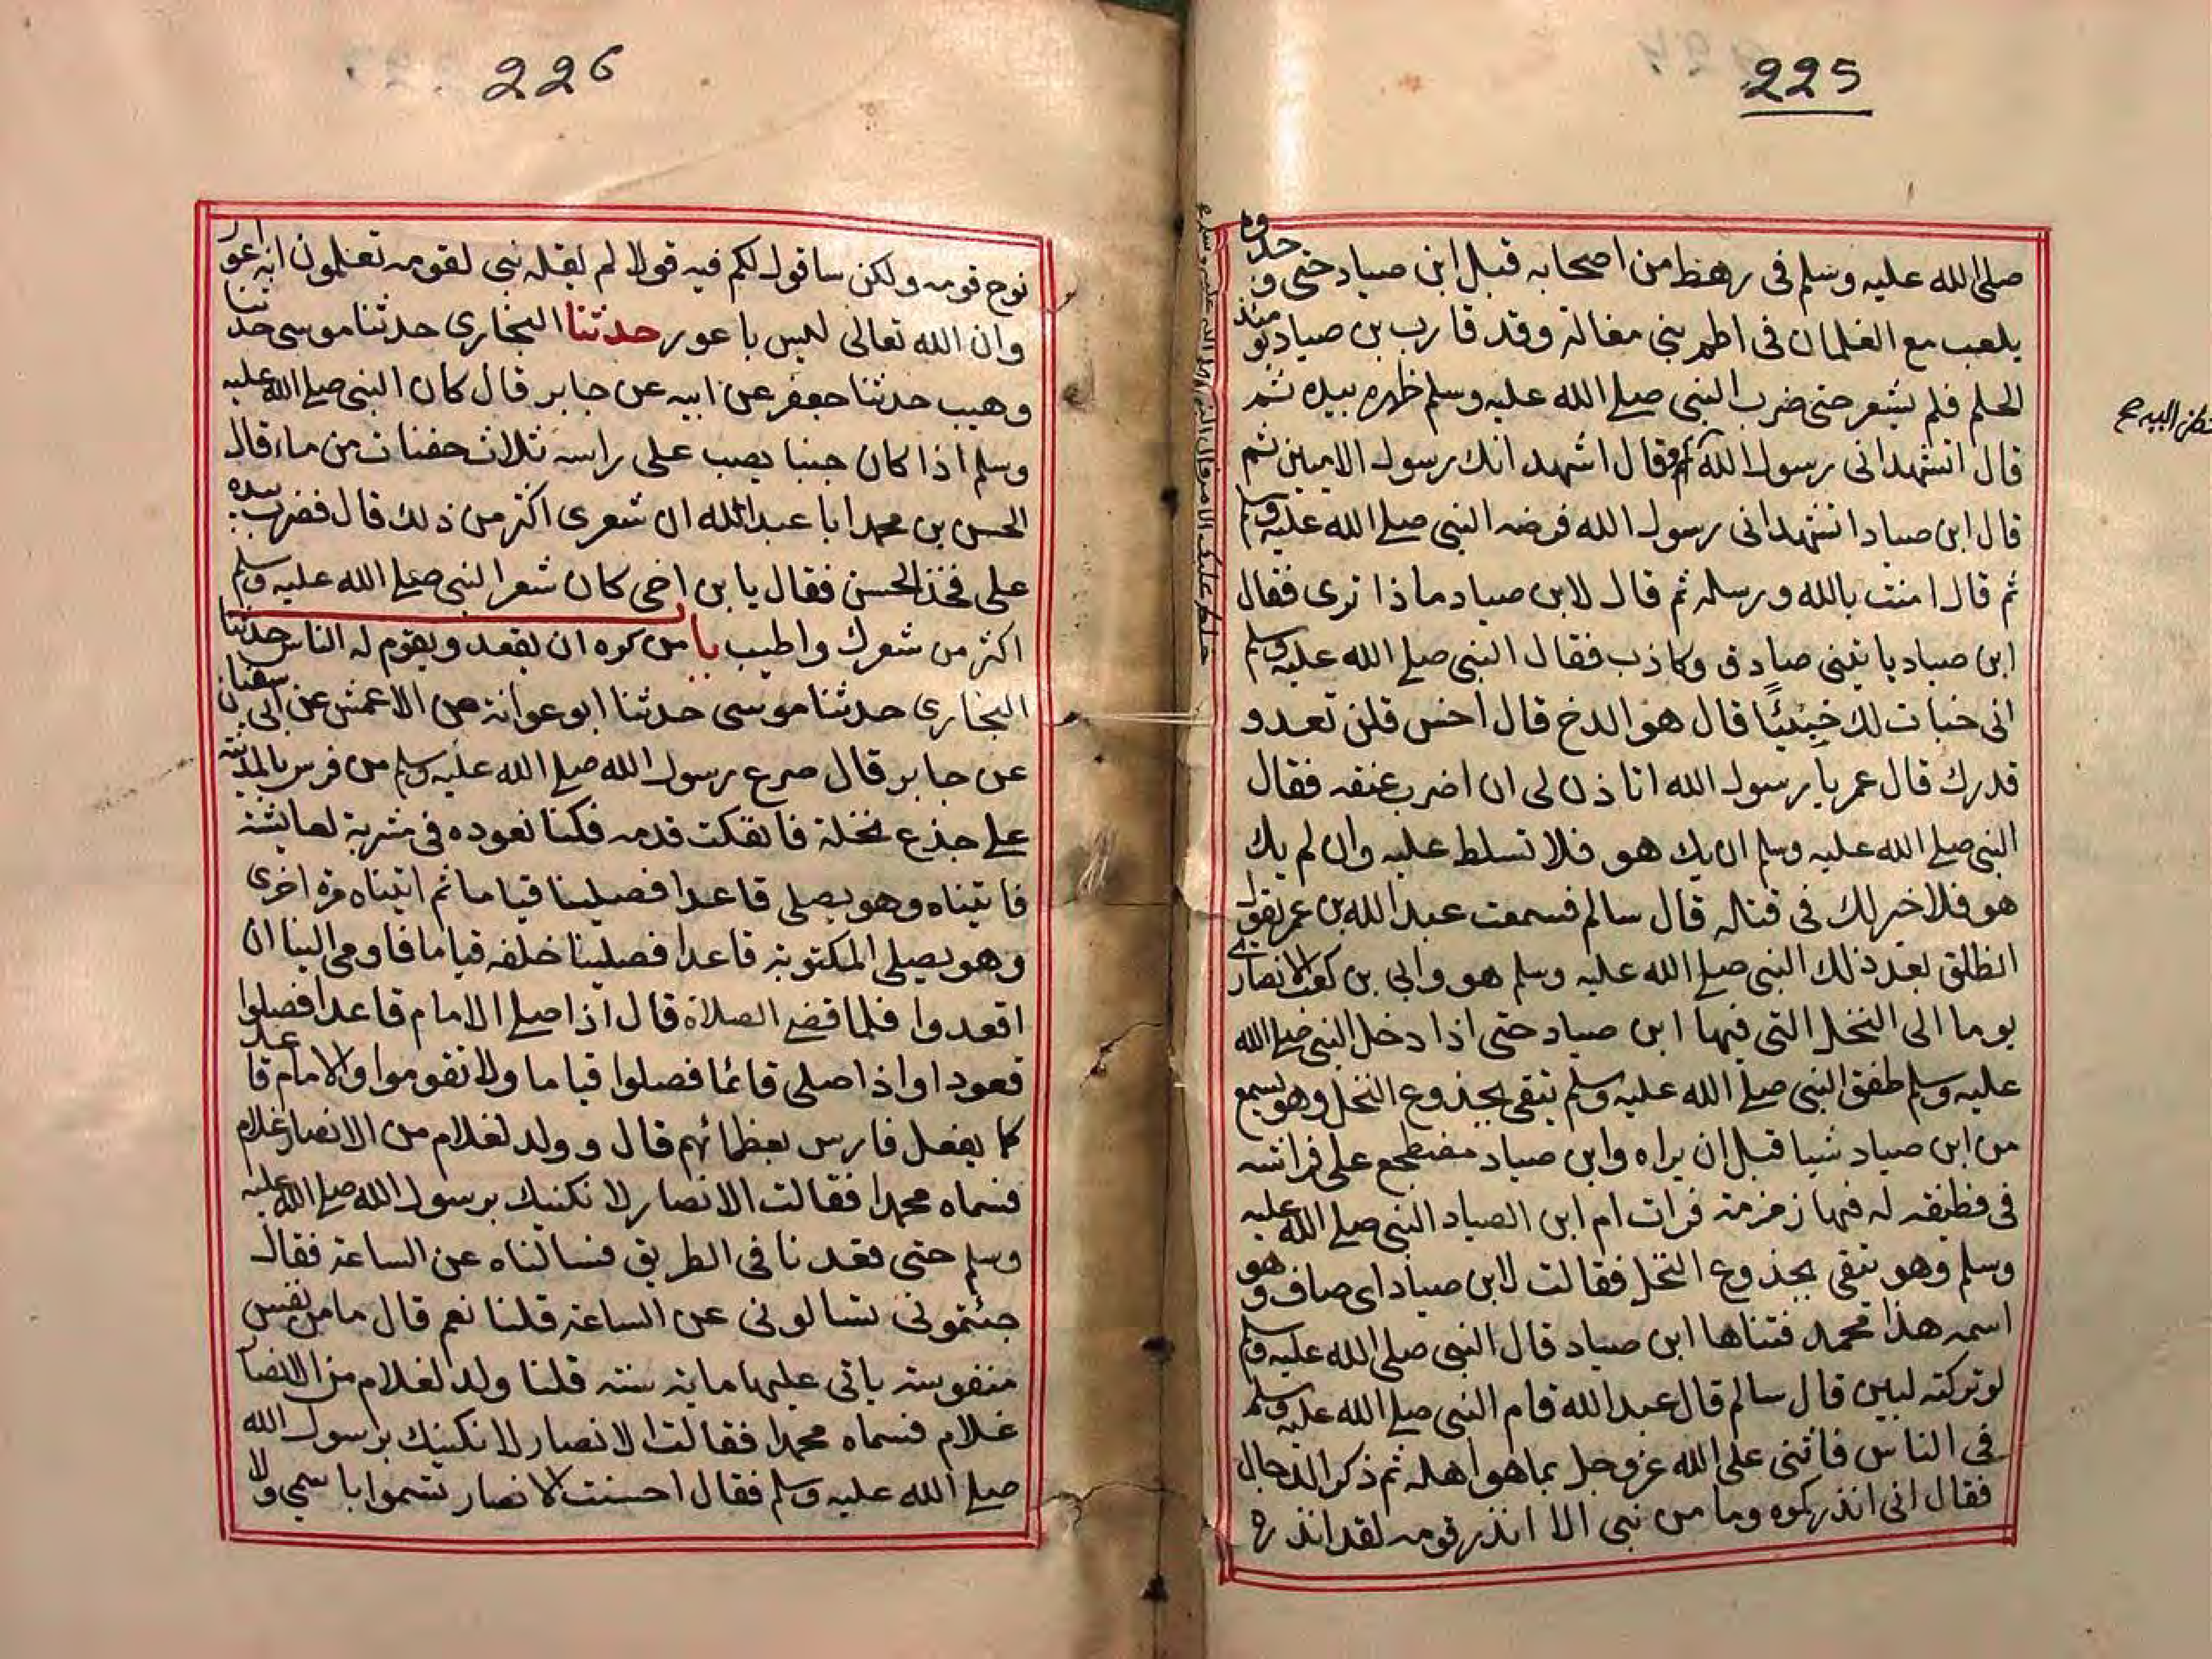 225
صلى الله عليه وسلم فى رهط من اصحابه قبل ابن صياد حتى وجدوه
يلعب مع الغلمان فى اطم بنى مغالة وقد قارب بن صياد يومئذ
الحلم فلم يشعر حتى ضرب النبى صلى الله عليه وسلم ظهره بيده ثم
قال اتشهد انى رسول الله فقال اشهد انك رسول الاميين ثم
قال ابن صياد اتشهد انى رسول الله فرضه النبى صلى الله عليه وسلم
ثم قال امنت بالله ورسله ثم قال لابن صياد ماذا ترى فقال
ابن صياد ياتينى صادق وكاذب فقال النبى صلى الله عليه وسلم
انى خبات لك خبيئًا قال هو الدخ قال اخس فلن تعدو
قدرك قال عمر يا رسول الله اتاذن لى ان اضرب عنقه فقال
النبى صلى الله عليه وسلم ان يك هو فلا تسلط عليه وان لم يك
هو فلا خير لك فى قتله قال سالم فسمعت عبد الله بن عمر يقول
انطلق بعد ذلك النبى صلى الله عليه وسلم هو وابى بن كعب الانصارى
يوما الى النخل التى فيها ابن صياد حتى اذا دخل النبى صلى الله
عليه وسلم طفق النبى صلى الله عليه وسلم يتقى بجذوع النخل وهو يسمع
من ابن صياد شيا قبل ان يراه وابن صياد مضطجع على فراشه
فى قطيفه له فيها زمزمة فرات ام ابن الصياد النبى صلى الله عليه
وسلم وهو يتقى بجذوع النخل فقالت لابن صياد اى صاف وهو
اسمه هذا محمد فتناها ابن صياد قال النبى صلى الله عليه وسلم
لو تركته لبين قال سالم قال عبد الله قام النبى صلى الله عليه وسلم
فى الناس فاثنى على الله عز وجل بما هو اهله ثم ذكر الدجال
فقال انى انذركموه وما من نبى الا انذر قومه لقد انذره
226
نوح قومه ولكن ساقول لكم فيه قولا لم يقله نبى لقومه تعلمون انه اعور
وان الله تعالى ليس باعور حدثنا البخارى حدثنا موسى حدثنا
وهيب حدثنا جعفر عن ابيه عن جابر قال كان النبى صلى الله عليه
وسلم اذا كان جنبا يصب على راسه ثلاث حفنات من ماء قال
الحسن بن محمد ابا عبد الله ان شعرى اكثر من ذلك قال فضرب بيده
على فخذ الحسن فقال يا بن اخى كان شعر النبى صلى الله عليه وسلم
اكثر من شعرك واطيب باب من كره ان يقعد ويقوم له الناس حدثنا
البخارى حدثنا موسى حدثنا ابو عوانة عن الاعمش عن ابى سفيان
عن جابر قال صرع رسول الله صلى الله عليه وسلم من فرس بالمدينة
على جذع نخلة فانفكت قدمه فكنا نعوده فى مشربة لعايشة
فاتيناه وهو يصلى قاعدا فصلينا قياما ثم اتيناه مرة اخرى
وهو يصلى المكتوبة قاعدا فصلينا خلفه قياما فاومى الينا ان
اقعدوا فلما قضى الصلاة قال اذا صلى الامام قاعدا فصلوا
قعودا واذا صلى قائما فصلوا قياما ولا تقوموا والامام قاعد
كما يفعل فارس بعظمائهم قال وولد لغلام من الانصار غلام
فسماه محمدا فقالت الانصار لا نكنيك برسول الله صلى الله عليه
وسلم حتى قعدنا فى الطريق فسالناه عن الساعة فقال
جئتمونى تسالونى عن الساعة قلنا نعم قال ما من نفس
منفوسة ياتى عليها ماية سنة قلنا ولد لغلام من الانصار
غلام فسماه محمدا فقالت الانصار لا نكنيك برسول الله
صلى الله عليه وسلم فقال احسنت الانصار تسموا باسمى ولا